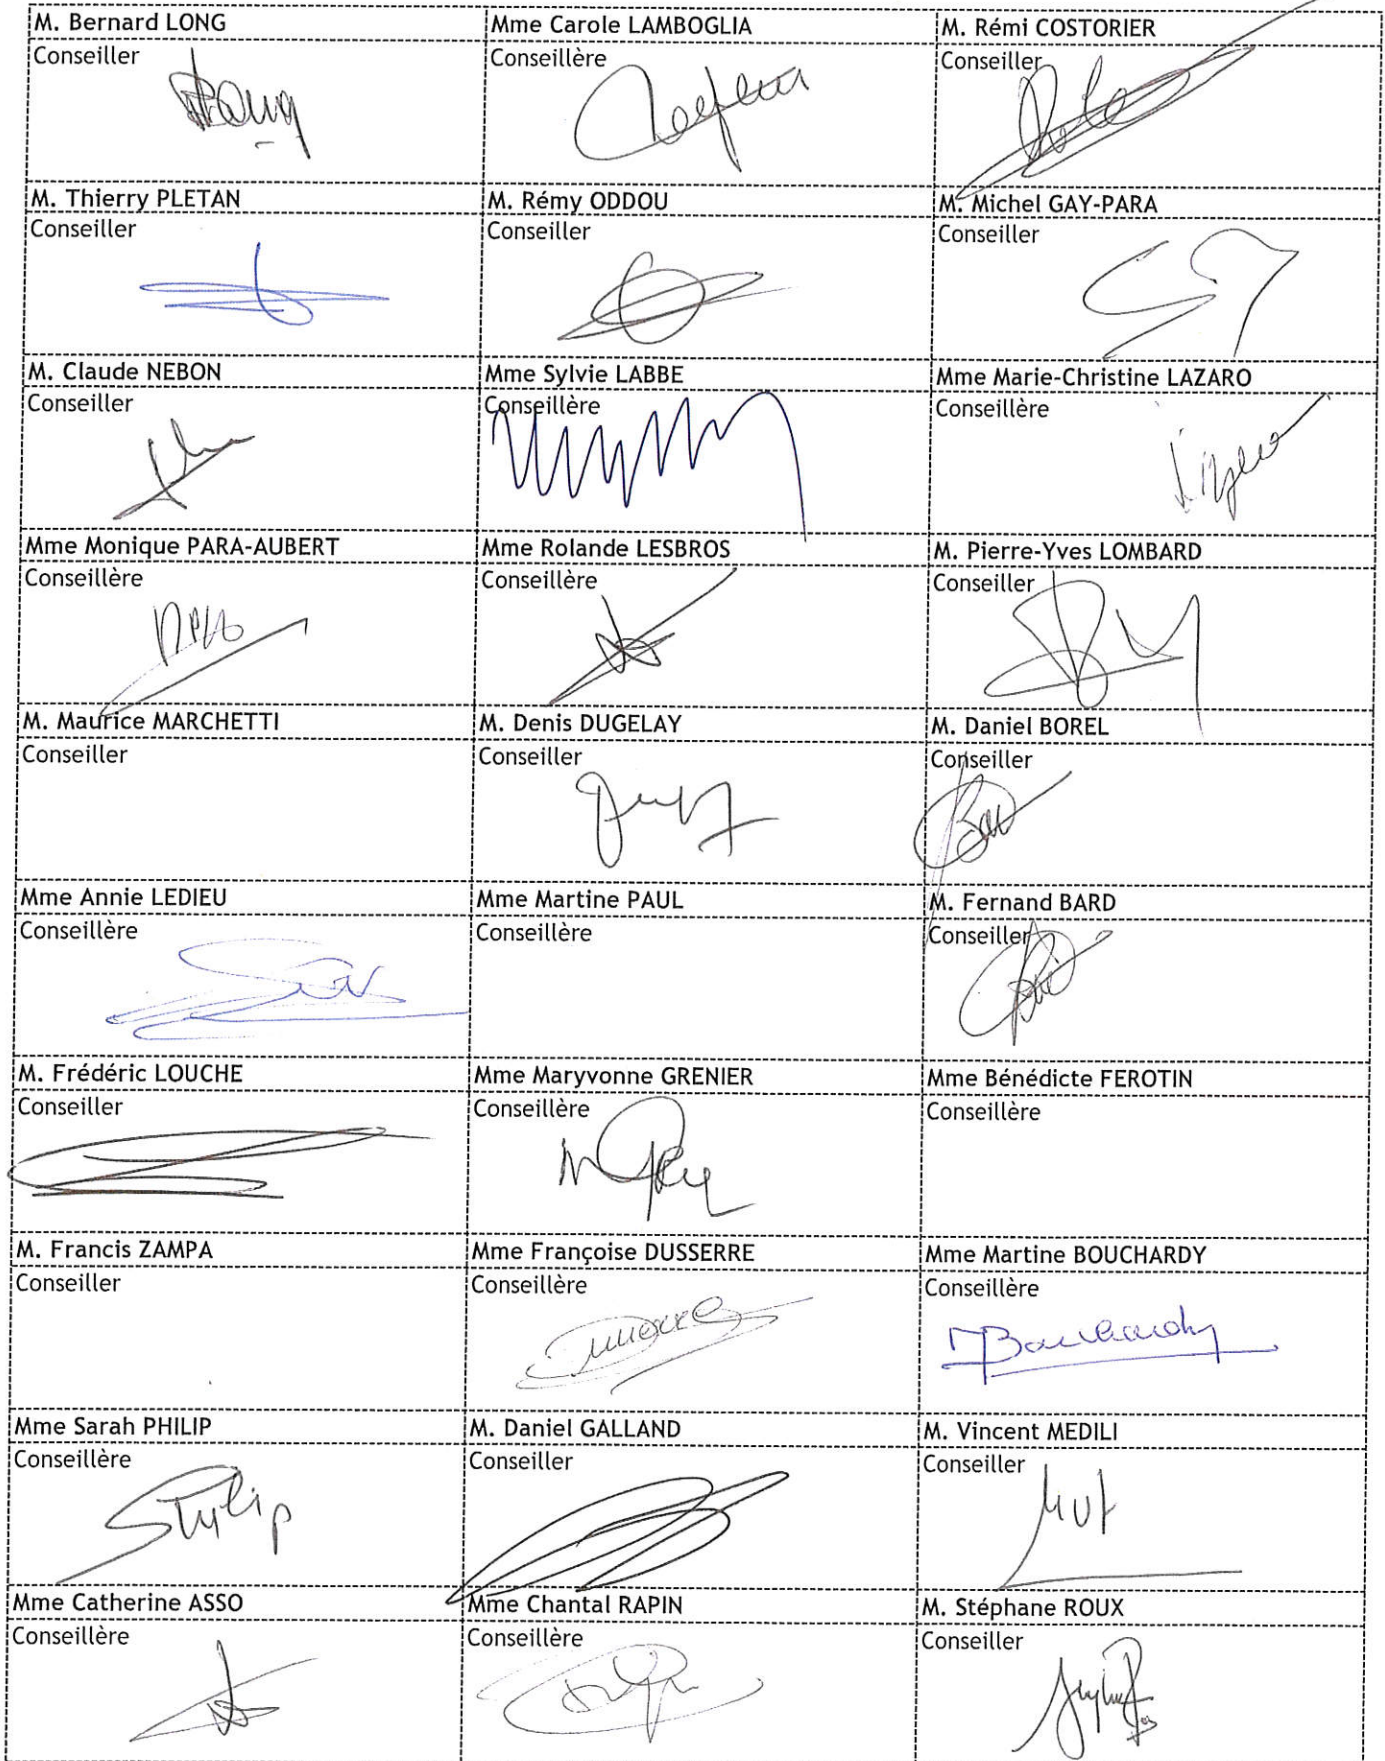 M. Bernard LONG
Mme Carole LAMBOGLIA
M. Rémi COSTORIER
Conseiller
Conseillère
Conseiller
M. Thierry PLETAN
M. Rémy ODDOU
M. Michel GAY-PARA
Conseiller
Conseiller
Conseiller
M. Claude NEBON
Mme Sylvie LABBE
Mme Marie-Christine LAZARO
Conseiller
Conseillère
Conseillère
Mme Monique PARA-AUBERT
Mme Rolande LESBROS
M. Pierre-Yves LOMBARD
Conseillère
Conseillère
Conseiller
M. Maurice MARCHETTI
M. Denis DUGELAY
M. Daniel BOREL
Conseiller
Conseiller
Conseiller
Mme Annie LEDIEU
Mme Martine PAUL
M. Fernand BARD
Conseillère
Conseillère
Conseiller
M. Frédéric LOUCHE
Mme Maryvonne GRENIER
Mme Bénédicte FEROTIN
Conseiller
Conseillère
Conseillère
M. Francis ZAMPA
Mme Françoise DUSSERRE
Mme Martine BOUCHARDY
Conseiller
Conseillère
Conseillère
MBouchardy
Mme Sarah PHILIP
M. Daniel GALLAND
M. Vincent MEDILI
Conseillère
Conseiller
Conseiller
SPhilip
Mme Catherine ASSO
Mme Chantal RAPIN
M. Stéphane ROUX
Conseillère
Conseillère
Conseiller